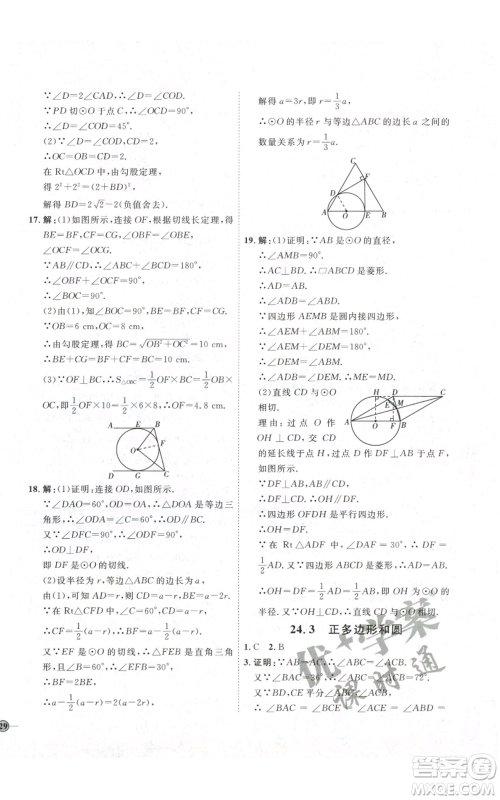 ∵∠D=2∠CAD,∴∠D=∠COD.
∵PD 切⊙O于点 C,∴∠OCD=90°,
∴∠D=∠COD=45°.
(2)∵∠D=∠COD,CD=2,
∴OC=OB=CD=2.
在 Rt△OCD 中,由勾股定理,
得2²+2²=(2+BD)²,
解得 BD=2√2-2(负值舍去).
17.解:(1)如图所示,连接 OF,根据切线长定理,得
BE=BF,CF=CG,∠OBF=∠OBE,
∠OCF=∠OCG.
∵AB∥CD,∴∠ABC+∠BCD=180°,
∴∠OBF+∠OCF=90°,
∴∠BOC=90°.
(2)由(1)知,∠BOC=90°.
∵OB=6 cm,OC=8 cm,
∴由勾股定理得 BC=√(OB²+OC²)=10 cm,
∴BE+CG=BC=10 cm.
(3)∵OF⊥BC,∴S△OBC=1/2 OF×BC=1/2 OB×
OC,即1/2 OF×10=1/2×6×8,∴OF=4.8 cm.
A E B
F
O
D G C
18.解:(1)证明:连接 OD,如图所示.
∵∠DAO=60°,OD=OA,∴△DOA是等边三
角形,∴∠ODA=∠C=60°,∴OD∥BC.
又∵∠DFC=90°,∴∠ODF=90°,
∴OD⊥DF,
即 DF是⊙O的切线.
(2)设半径为 r,等边△ABC的边长为 a,
由(1)可知AD=r,则CD=a-r,BE=a-2r.
在 Rt△CFD 中,∠C=60°,CD=a-r,
∴CF=1/2(a-r),∴BF=a-1/2(a-r).
又∵EF是⊙O的切线,
∴△FEB是直角三角形,且∠B=60°,∠EFB=30°,
∴BF=2BE,
∴a-1/2(a-r)=2(a-2r),
解得 a=3r,即 r=1/3 a,
∴⊙O的半径 r与等边△ABC的边长 a之间的
数量关系为 r=1/3 a.
C
D F
A O E B
19.解:(1)证明:∵AB是⊙O的直径,
∴∠ACB=90°,
∴AC⊥BD.∴□ABCD是菱形,
∴AD=AB.
∵四边形 ABME是圆内接四边形,
∴∠AEM+∠ABM=180°.
又∵∠AEM+∠DEM=180°,
∴∠ABM=∠DEM.
(2)直线 CD 与⊙O
相切.
理由:过点 O 作
OH⊥CD,交 CD
的延长线于点 H,过点D作 DF⊥AB于点F,
∵DF⊥AB,∴∠DFB=90°,
∵AB∥CD,∴DF⊥DH,
∴四边形 OFDH是矩形,
∴OH=DF.
∵在 Rt△ADF 中,∠DAF=30°,
∴DF=1/2 AD=1/2 AB,
∴OH=1/2 AB,即 OH 是半径.
又∵OH⊥CD,∴直线 CD与⊙O相切.
24.3 正多边形和圆
1.C 2.B
3.证明:∵AB=AC,∠BAC=36°,
∴∠ABC=∠ACB=72°.
又∵BD,CE 平分∠ABC,∠ACB,
∴∠BAC=∠BCE=∠ACE=∠ABD=
优+学案
课时通
29